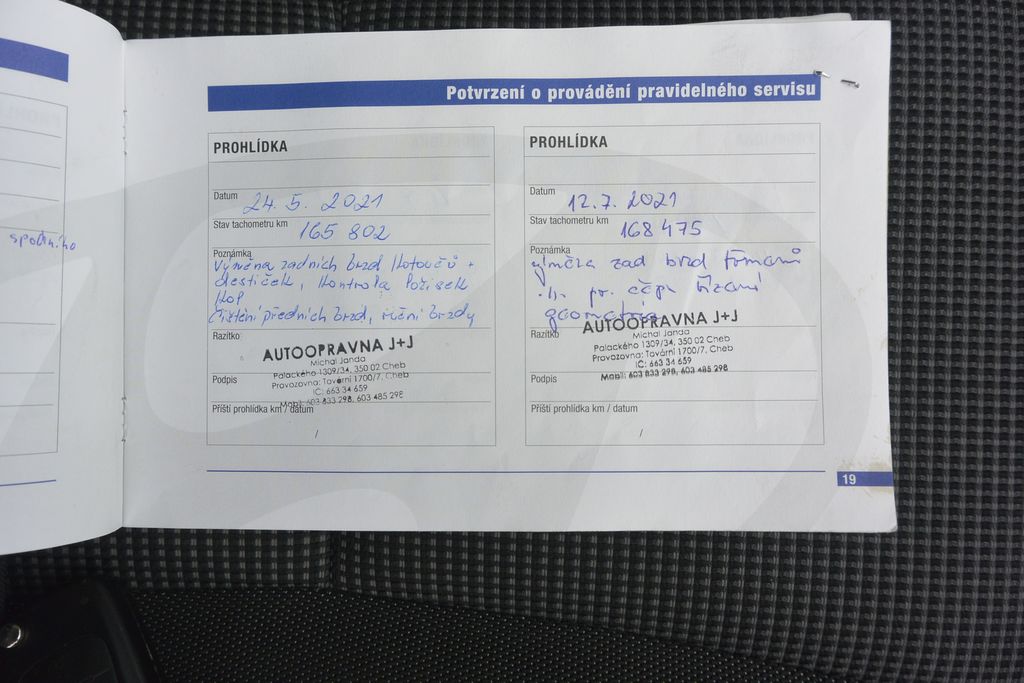 spodního
Potvrzení o provádění pravidelného servisu
PROHLÍDKA
Datum 24. 5. 2021
Stav tachometru km 165 802
Poznámka
Výměna zadních brzd kotoučů +
destiček, kontrola ložisek
kol
čištění předních brzd, ruční brzdy
Razítko
AUTOOPRAVNA J+J
Michal Janda
Palackého 1309/34, 350 02 Cheb
Provozovna: Tovární 1700/7, Cheb
IČ: 663 34 659
Mobil: 603 833 298, 603 485 298
Podpis
Příští prohlídka km / datum
/
PROHLÍDKA
Datum 12. 7. 2021
Stav tachometru km 168 475
Poznámka
zad brzd třmenů
-||- př. čepu řízení
geometrie
Razítko
AUTOOPRAVNA J+J
Michal Janda
Palackého 1309/34, 350 02 Cheb
Provozovna: Tovární 1700/7, Cheb
IČ: 663 34 659
Mobil: 603 833 298, 603 485 298
Podpis
Příští prohlídka km / datum
/
19